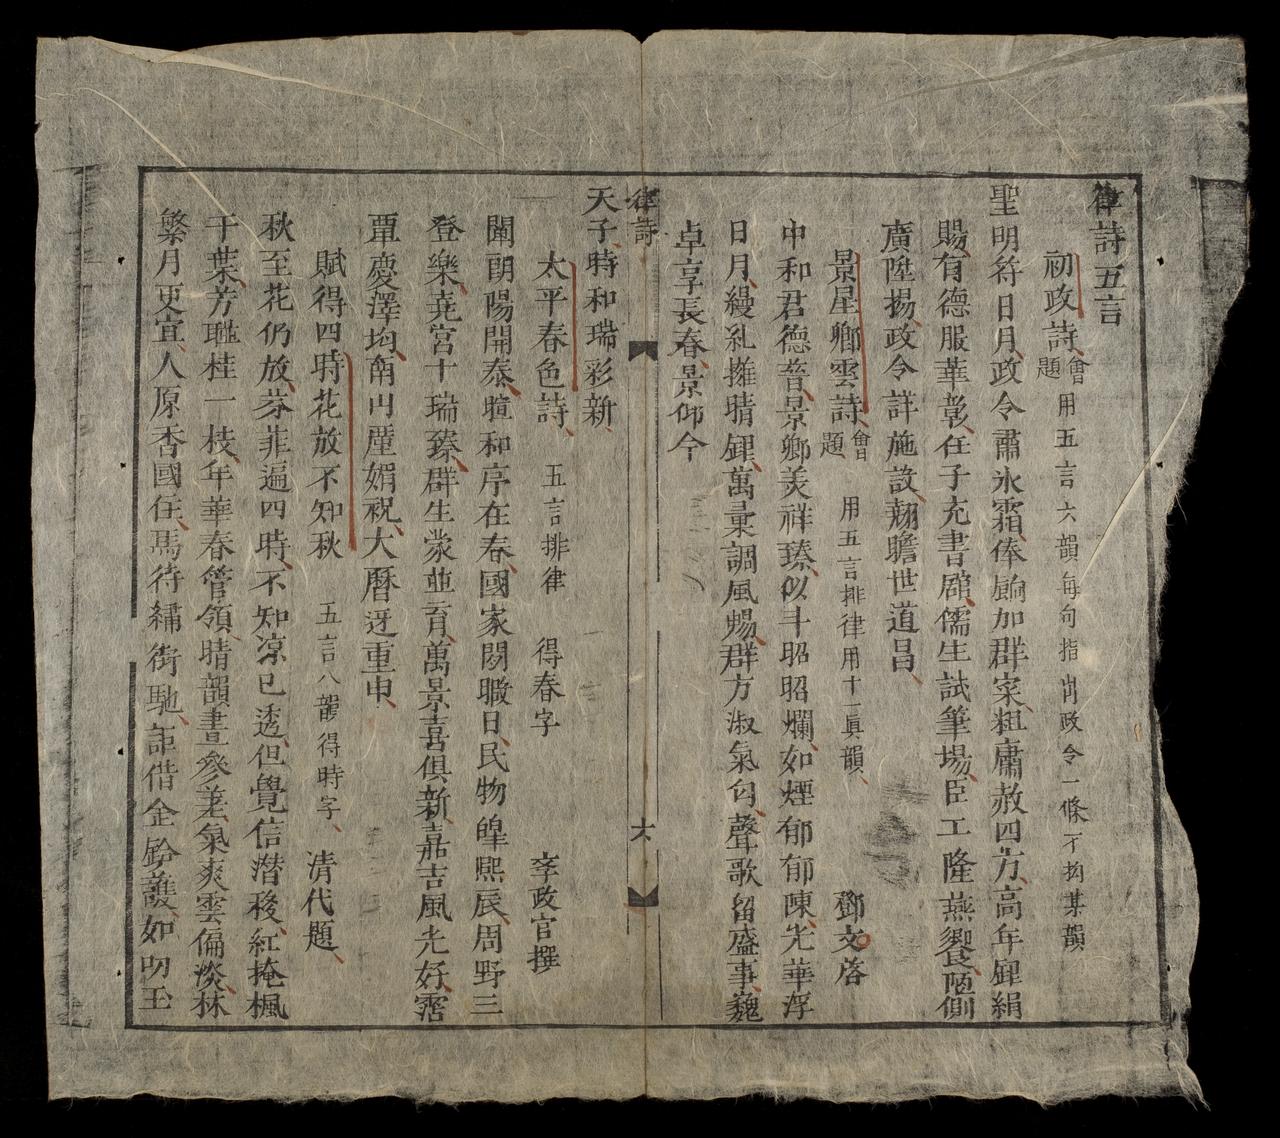 律詩五言
初政詩會題 用五言六韻每句指出政令一條不拘某韻
聖明符日月政令肅氷霜俸餉加群寀粗庸赦四方高年肆絹
賜有德服華彰任子充書辟儒生試筆場臣工隆燕饗陋側
廣陞揚政令詳施設翹瞻世道昌
景星鄉雲詩會題 用五言排律用十一眞韻 鄧文啓
中和君德普景鄉羙祥臻似斗昭昭爛如煙郁郁陳光華浮
日月縵糺擁晴 萬彙調風賜群方淑氣匀聲歌留盛事巍
卓享長春景仰今
律詩 六
天子時和瑞彩新
太平春色詩 五言排律 得春字 李政官撰
闡朝陽開泰暄和序在春國家閒職日民物皥熙辰周野三
登樂堯宮十瑞臻群生蒙並育萬景喜俱新嘉吉風光好霑
覃慶澤均 媚祝大曆迓重申
賦得四時花放不知秋 五言八韻得時字 清代題
秋至花仍放芬菲遍四時不知凉已透但覺信潛移紅掩楓
千葉芳 桂一枝年華春管領晴韻晝參差氣爽雲偏淡林
繁月更宜人原香國住馬待繡街馳詎借金鈴護如叨玉